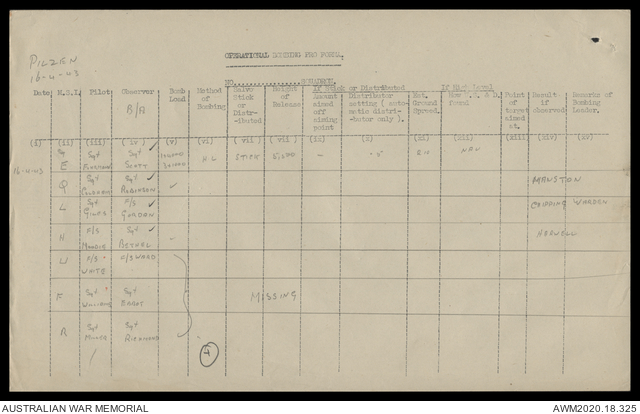 PILZEN
16-4-43
OPERATIONAL BOMBING PRO FORMA.
NO. SQUADRON.
Date M.S.I. Pilot Observer Bomb Load Method of Bombing Salvo Stick or Distr-ibuted Height of Release If Stick or Distributed If Nav Level Point of target aimed at. Result if observed Remarks of Bombing Leader.
B/A
Amount aimed off aiming point
Distributor setting (auto-matic distri-butor only).
Est. Ground Speed.
found
(i) (ii) (iii) (iv) (v) (vi) (vii) (viii) (ix) (x) (xi) (xii) (xiii) (xiv) (xv)
16-4-43 E Sgt Sgt SCOTT H.L STICK - .5
Q Sgt Sgt ROBINSON MANSTON
L Sgt GILES F/S GORDON CHIPPING WARDEN
H F/S Sgt BETHEL HARWELL
U F/S WHITE F/S WARD
F Sgt WILLIAMS Sgt MISSING
R Sgt Sgt RICHMOND
4
AUSTRALIAN WAR MEMORIAL
AWM2020.18.325